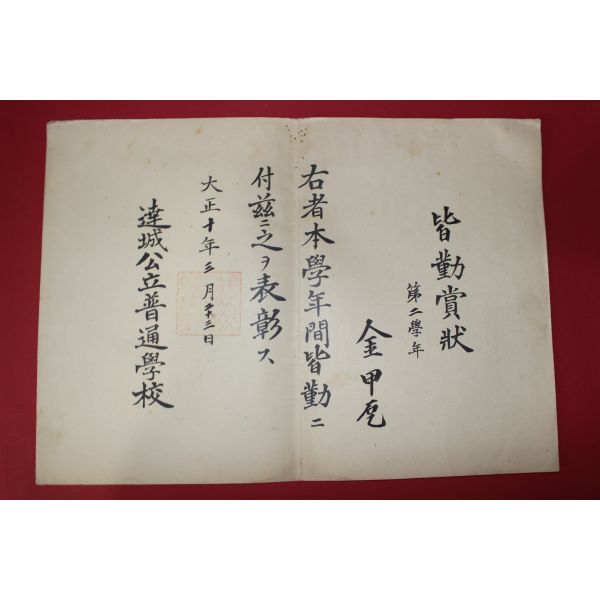 皆勤賞狀
第二學年
金甲
右者本學年間皆勤ニ
付兹ニ之ヲ表彰ス
大正十年三月廿三日
達城公立普通學校